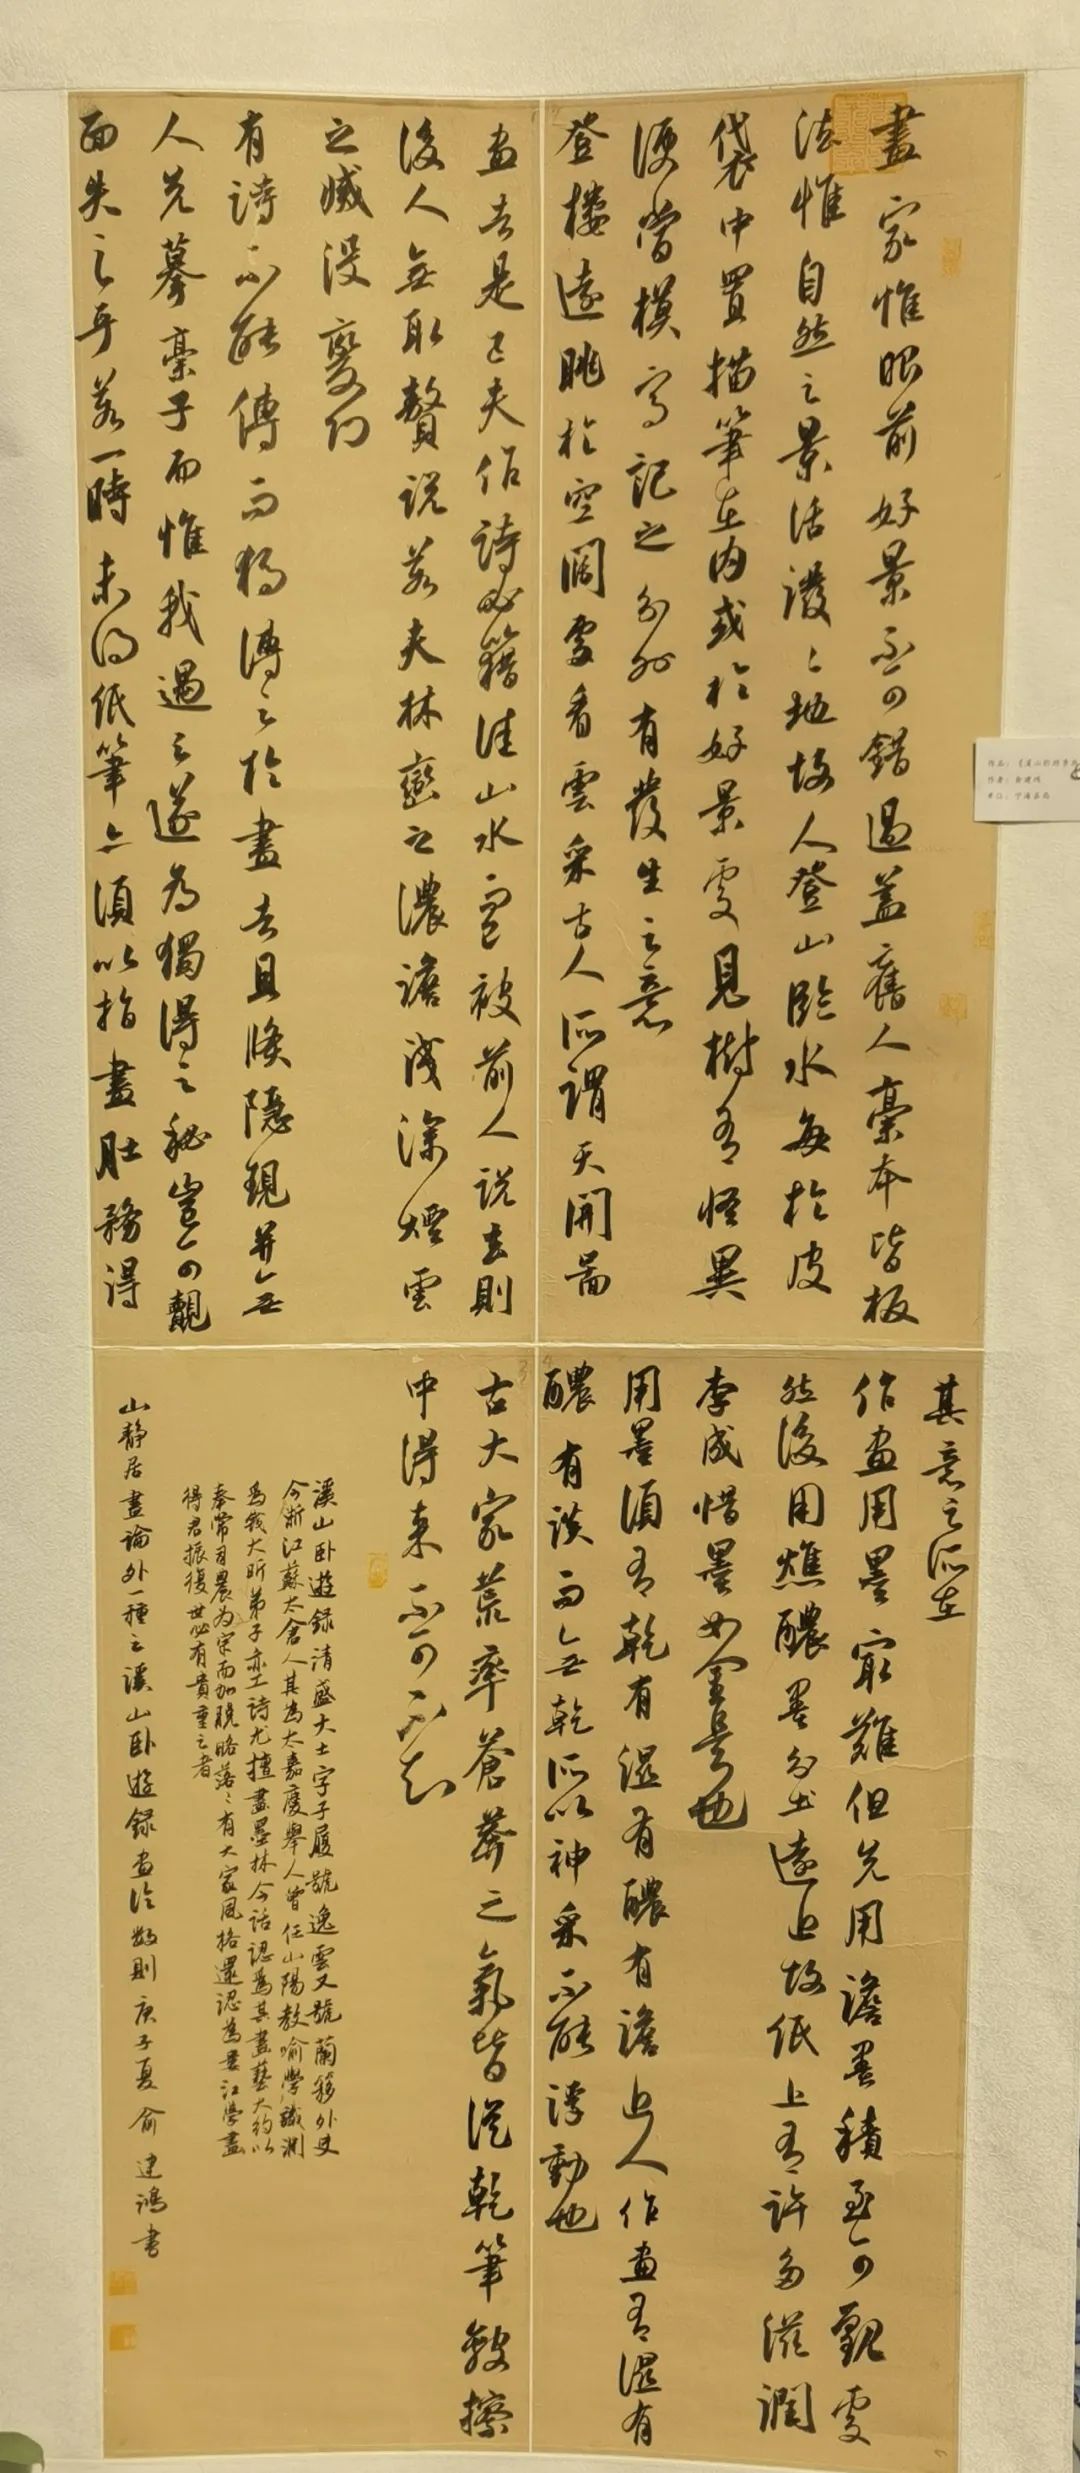 畫家惟眼前好景不可錯過蓋舊人稾本皆板
法惟自然之景活潑潑地故人登山臨水每於皮
袋中置描筆在內或於好景處見樹有怪異
便當模寫記之分外有發生之意
登樓遠眺於空闊處看雲采古人所謂天開圖
畫者是已夫作詩必籍佳山水而已被前人說去則
後人無取贅說若夫林巒之濃澹淺深煙雲
之滅沒變幻
有詩不能傳而獨傳之於畫者且倏隱現并無
人先摹稾子而惟我遇之遂為獨得之秘豈可覿
面失之乎若一時未得紙筆亦須以指畫肚務得
其意之所在
作畫用墨最難但先用澹墨積至可觀處
然後用燋醲墨分出遠近故紙上有許多滋潤
李成惜墨如金是也
用墨須有乾有濕有醲有澹近人作畫有濕有
醲有淡而無乾所以神采不能浮動也
古大家荒率蒼莽之氣皆從乾筆皴擦
中得來不可不知
溪山卧遊錄清盛大士字子履號逸雲又號蘭簃外史
今浙江蘇太倉人其為太嘉慶舉人曾任山陽教喻學識淵
為錢大昕弟子亦工詩尤擅畫墨林今話認為其畫藝大約以
奉常司農為宗而加脫略落落有大家風格還認為婁江學畫
得君振復世必有貴重之者
山靜居畫論外一種之溪山卧遊錄畫論數則庚子夏俞建鴻書